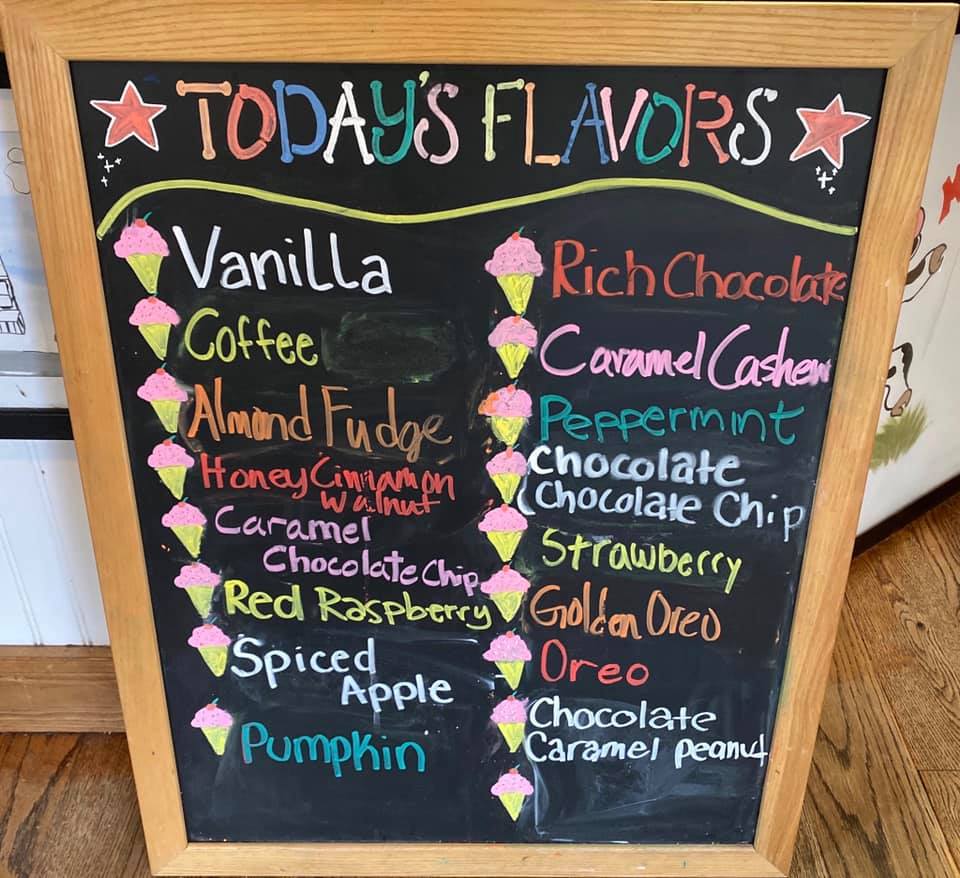 TODAY'S FLAVORS
Vanilla
Coffee
Almond Fudge
Honey Cinnamon
Walnut
Caramel
Chocolate Chip
Red Raspberry
Spiced
Apple
Pumpkin
Rich Chocolate
Caramel Cashew
Peppermint
Chocolate
Chocolate Chip
Strawberry
Golden Oreo
Oreo
Chocolate
Caramel Peanut